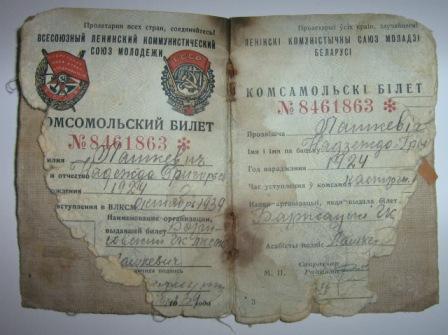 Пролетарии всех стран, соединяйтесь!
ВСЕСОЮЗНЫЙ ЛЕНИНСКИЙ КОММУНИСТИЧЕСКИЙ
СОЮЗ МОЛОДЕЖИ
СССР
ОМСОМОЛЬСКИЙ БИЛЕТ
№ 8461863 *
илия Пашкевич
и отчество Надежда Григорьев
ождения 1924
вступления в ВЛКСМ октябрь 1939
Наименование организации,
выдавшей билет Бори
совский ГК
Пашкевич
подпись
Пролетарыі ўсіх краін, злучайцеся!
ЛЕНІНСКІ КОМУНІСТЫЧНЫ САЮЗ МОЛАДЗІ
БЕЛАРУСІ
КОМСАМОЛЬСКІ БІЛЕТ
№ 8461863 *
Прозвішча Пашкевіч
Імя і імя па бацьку Надзежда
Год нараджэння 1924
Час уступлення ў комсамол
Назва арганізацыі, якая выдала білет
Барысаўскі ГК
Асабісты подпіс Пашке
М. П.
Сакратар
3